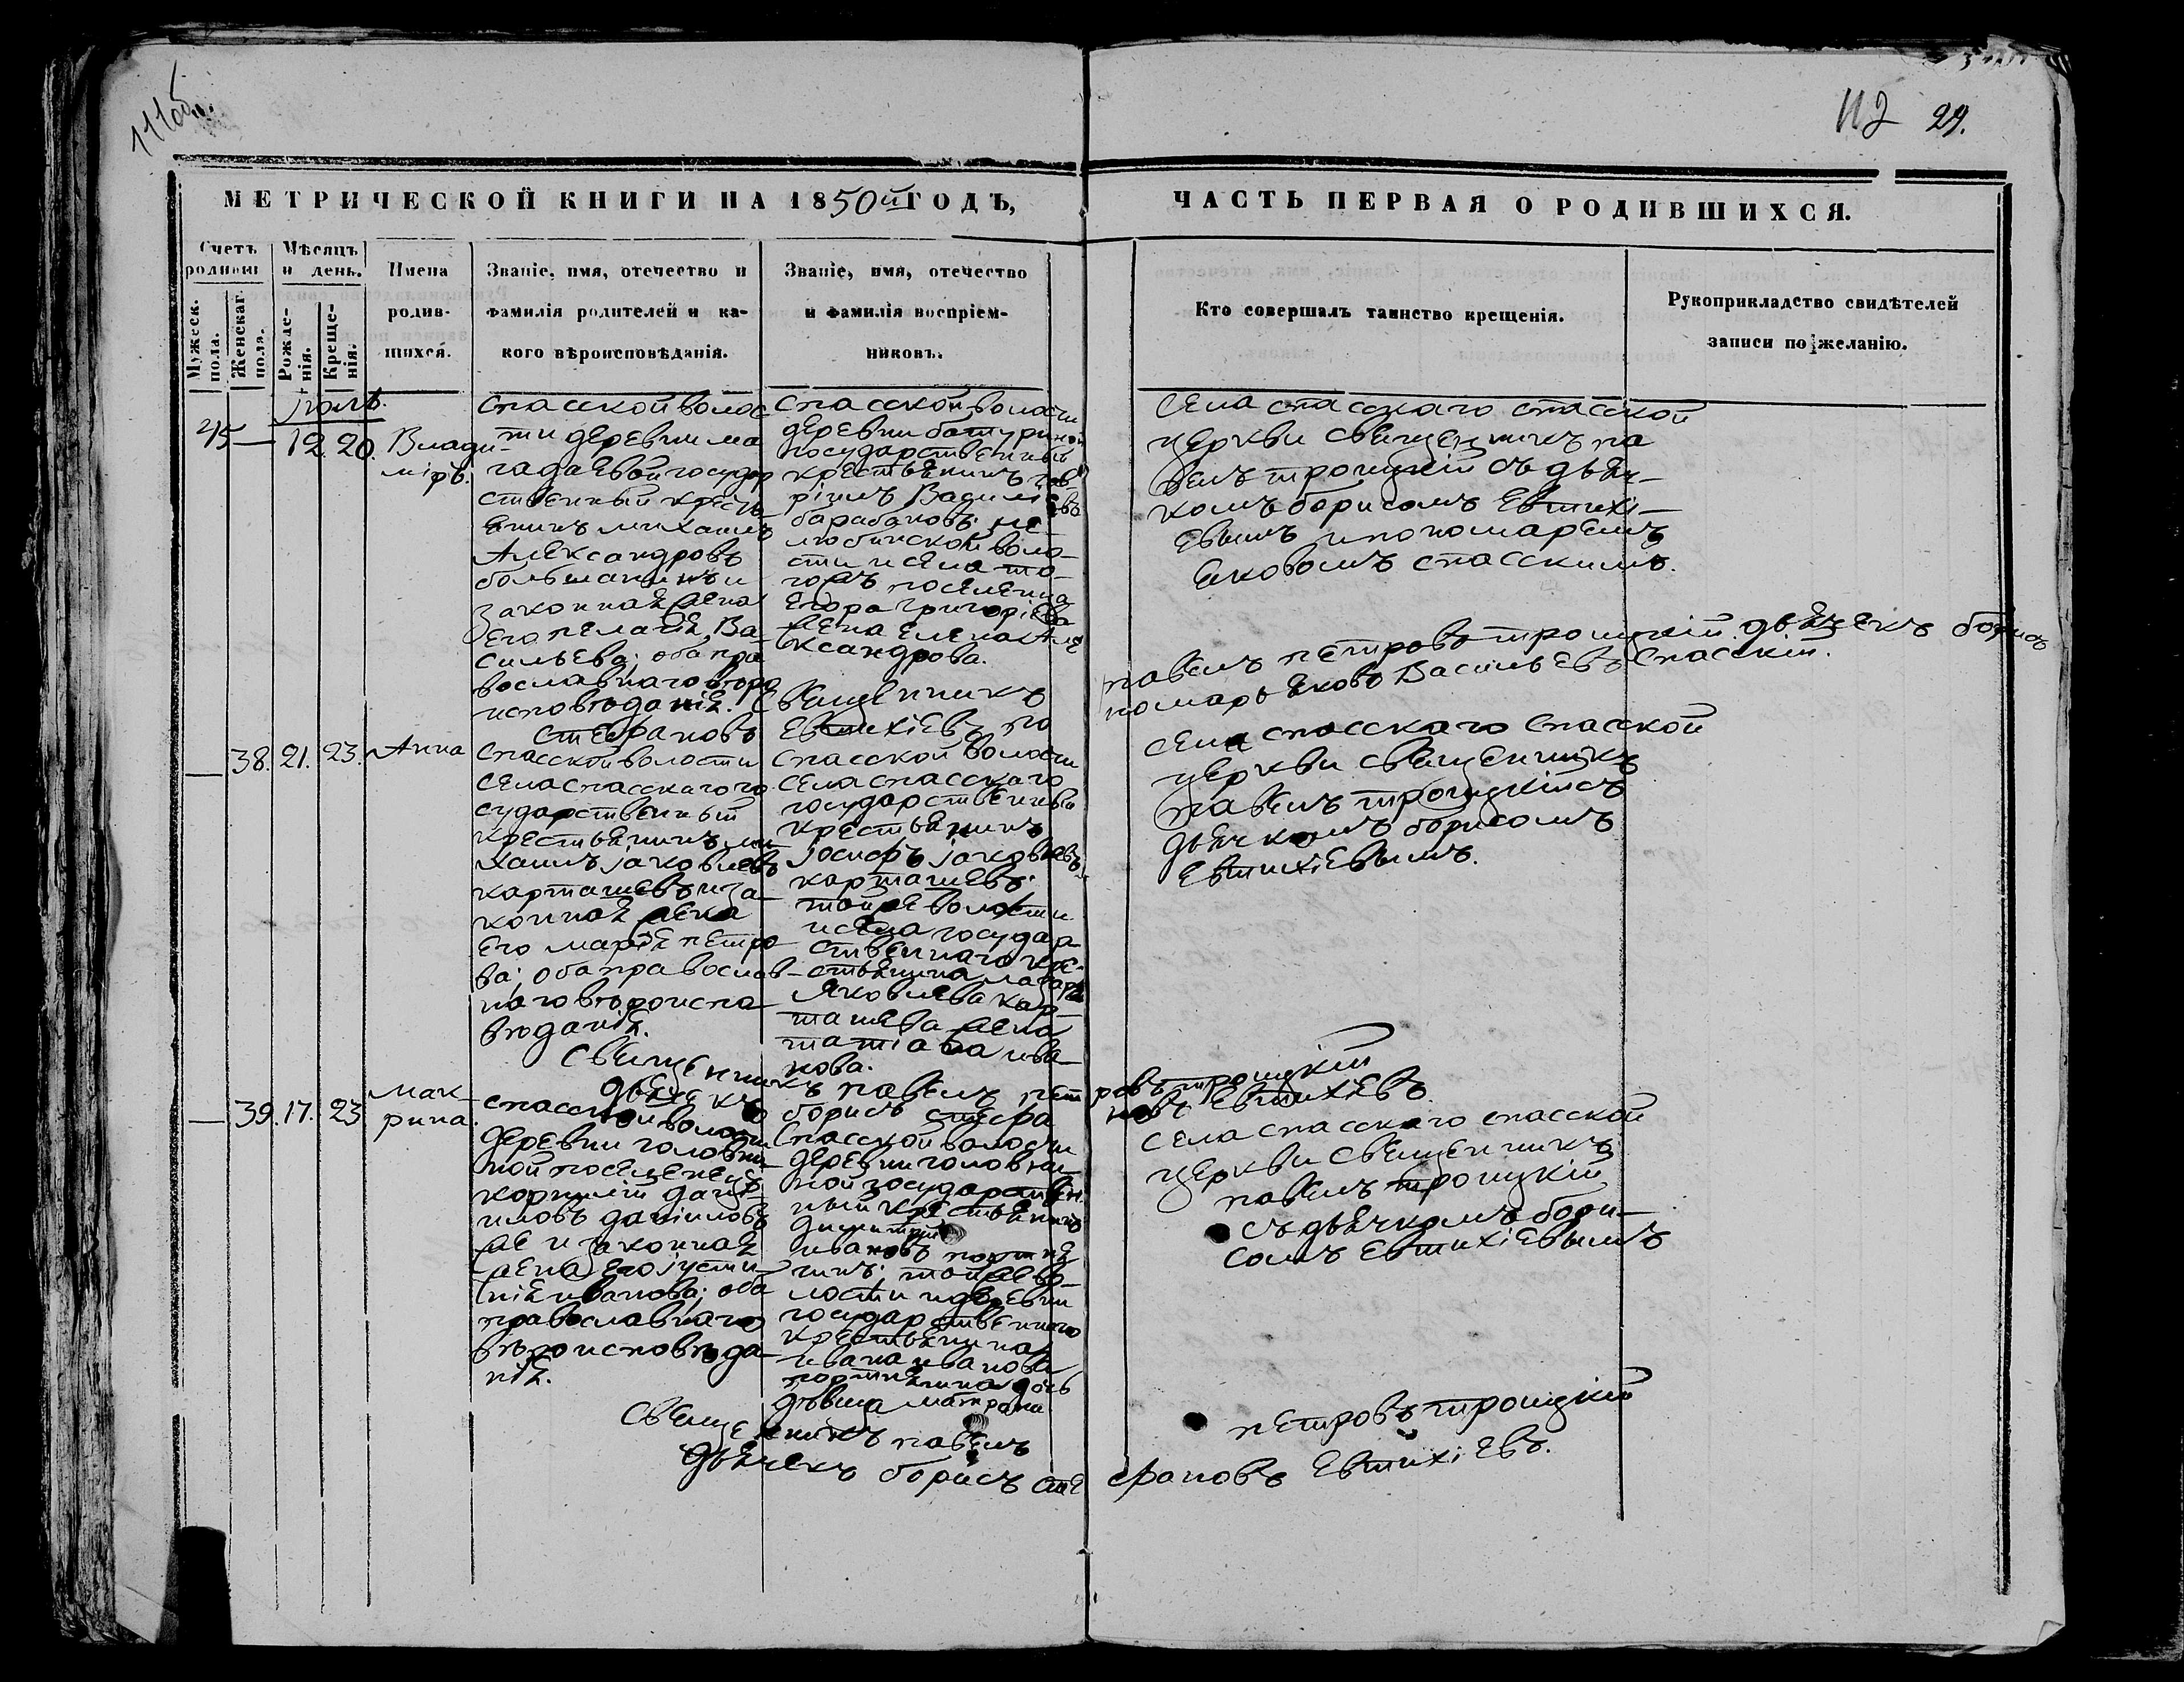 111об.
112 29.
МЕТРИЧЕСКОЙ КНИГИ НА 1850й ГОДЪ,
ЧАСТЬ ПЕРВАЯ О РОДИВШИХСЯ.
Счетъ родивш
Мужеск. пола.
Женскаг. пола.
Мѣсяцъ и день.
Рожде-
нія.
Креще-
нія.
Имена
родив-
шихся.
Званіе, имя, отечество и
фамилія родителей и ка-
кого вѣроисповѣданія.
Званіе, имя, отечество
и фамилія воспріем-
никовъ.
Кто совершалъ таинство крещенія.
Рукоприкладство свидѣтелей
записи по желанію.
45 — 12. 20.
Влади-
міръ.
Спасской волос
ти деревни ма
гадаевой государ
ственный кресть
янинъ михаилъ
Александровъ
большанинъ и
законная жена
его пелагія Ва-
сильева; оба пра
вославнаго вѣро
исповѣданія.
Спасской волости
деревни батуриной
государственный
крестьянинъ гав-
ріилъ
барабановъ;
любинской воло-
сти и села то-
гожъ поселенца
Егора Григоріева
жена елена Але
ксандрова.
Села спасскаго спасской
церкви священникъ па
велъ троицкій съ дьяч-
комъ борисомъ Евтихі-
евымъ и пономаремъ
яковомъ спасскимъ.
Священникъ павелъ петровъ троицкій. дьячекъ борисъ
Стефановъ Евтихіевъ по номарь яковъ Васильевъ Спасскій.
— 38. 21. 23. Анна
Спасской волости
села спасскаго го-
сударственный
крестьянинъ ми
хаилъ іаковлевъ
карташевъ и за-
конная жена
его марія петро
ва; оба православ-
наго вѣроиспо
вѣданія.
Спасской волости
села спасскаго
государственный
крестьянинъ
іосифъ іаковлевъ
карташевъ;
тойже волости
и села государ-
ственнаго кре-
стьянина лазаря
Яковлева кар-
ташева жена
татіана ива-
нова.
Села спасскаго Спасской
церкви священникъ
павелъ троицкій съ
дьячкомъ борисомъ
Евтихіевымъ.
Священникъ павелъ петровъ троицкій
дьячекъ борисъ стефановъ Евтихіевъ.
— 39. 17. 23 мак-
рина.
спасской волости
деревни головни-
ной поселенецъ
корнилій дани-
иловъ даніиловъ
же и законная
жена его іусти-
нія иванова; оба
православнаго
вѣроисповѣда-
нія.
Спасской волости
деревни головни-
ной государствен.
ный крестьянинъ
димитрій
ивановъ портня
гинъ; тойже во-
лости и деревни
государственнаго
крестьянина
ивана иванова
портнягина дочь
дѣвица матрона
села спасскаго спасской
церкви священникъ
павелъ троицкій
съ дьячкомъ бори-
сомъ Евтихіевымъ
Священникъ павелъ петровъ троицкій
дьячекъ борисъ стефановъ Евтихіевъ.